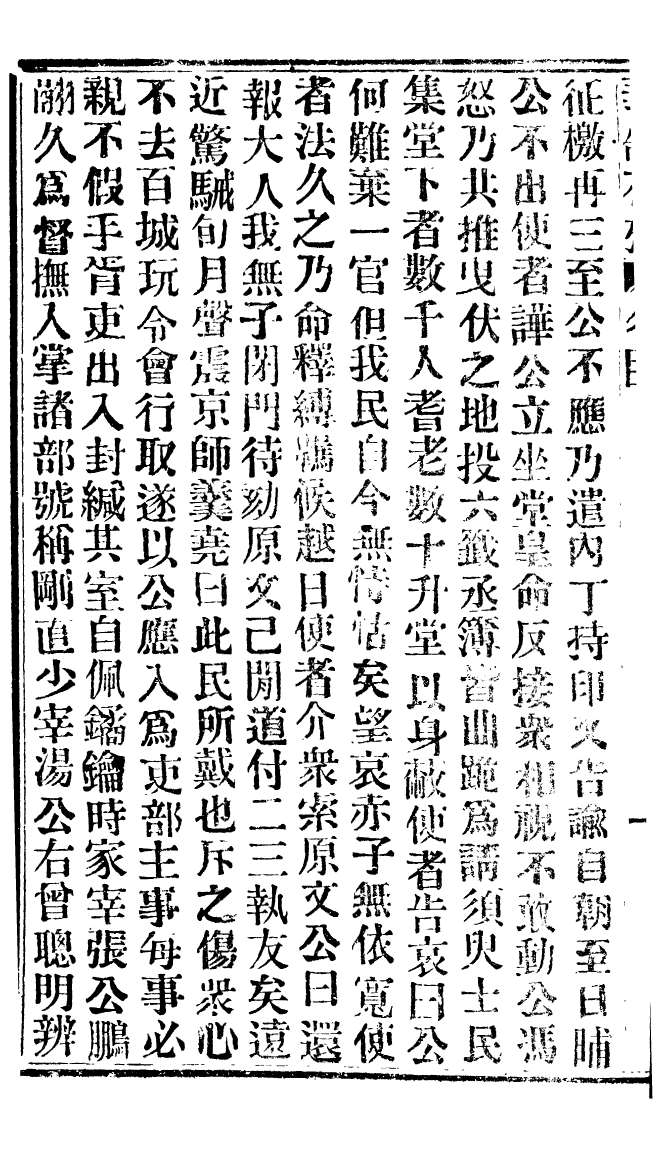 征檄再三至公不應乃遣內丁持印文告諭自朝至日晡
公不出使者譁公立坐堂皇命反接衆相視不敢動公馮
怒乃共推曳伏之地投六籤丞簿皆曲跪爲請須臾士民
集堂下者數千人耆老數十升堂以身蔽使者告哀曰公
何難棄一官但我民自今無恃怙矣望哀赤子無依寬使
者法久之乃命釋縛鵠候越日使者介衆索原文公曰還
報大人我無子閉門待劾原文已閒道付二三執友矣遠
近驚駴旬月聲震京師龔堯曰此民所戴也斥之傷衆心
不去百城玩令會行取遂以公應入爲吏部主事每事必
親不假手胥吏出入封緘其室自佩鐍鑰時家宰張公鵬
翮久爲督撫入掌諸部號稱剛直少宰湯公右曾聰明辨